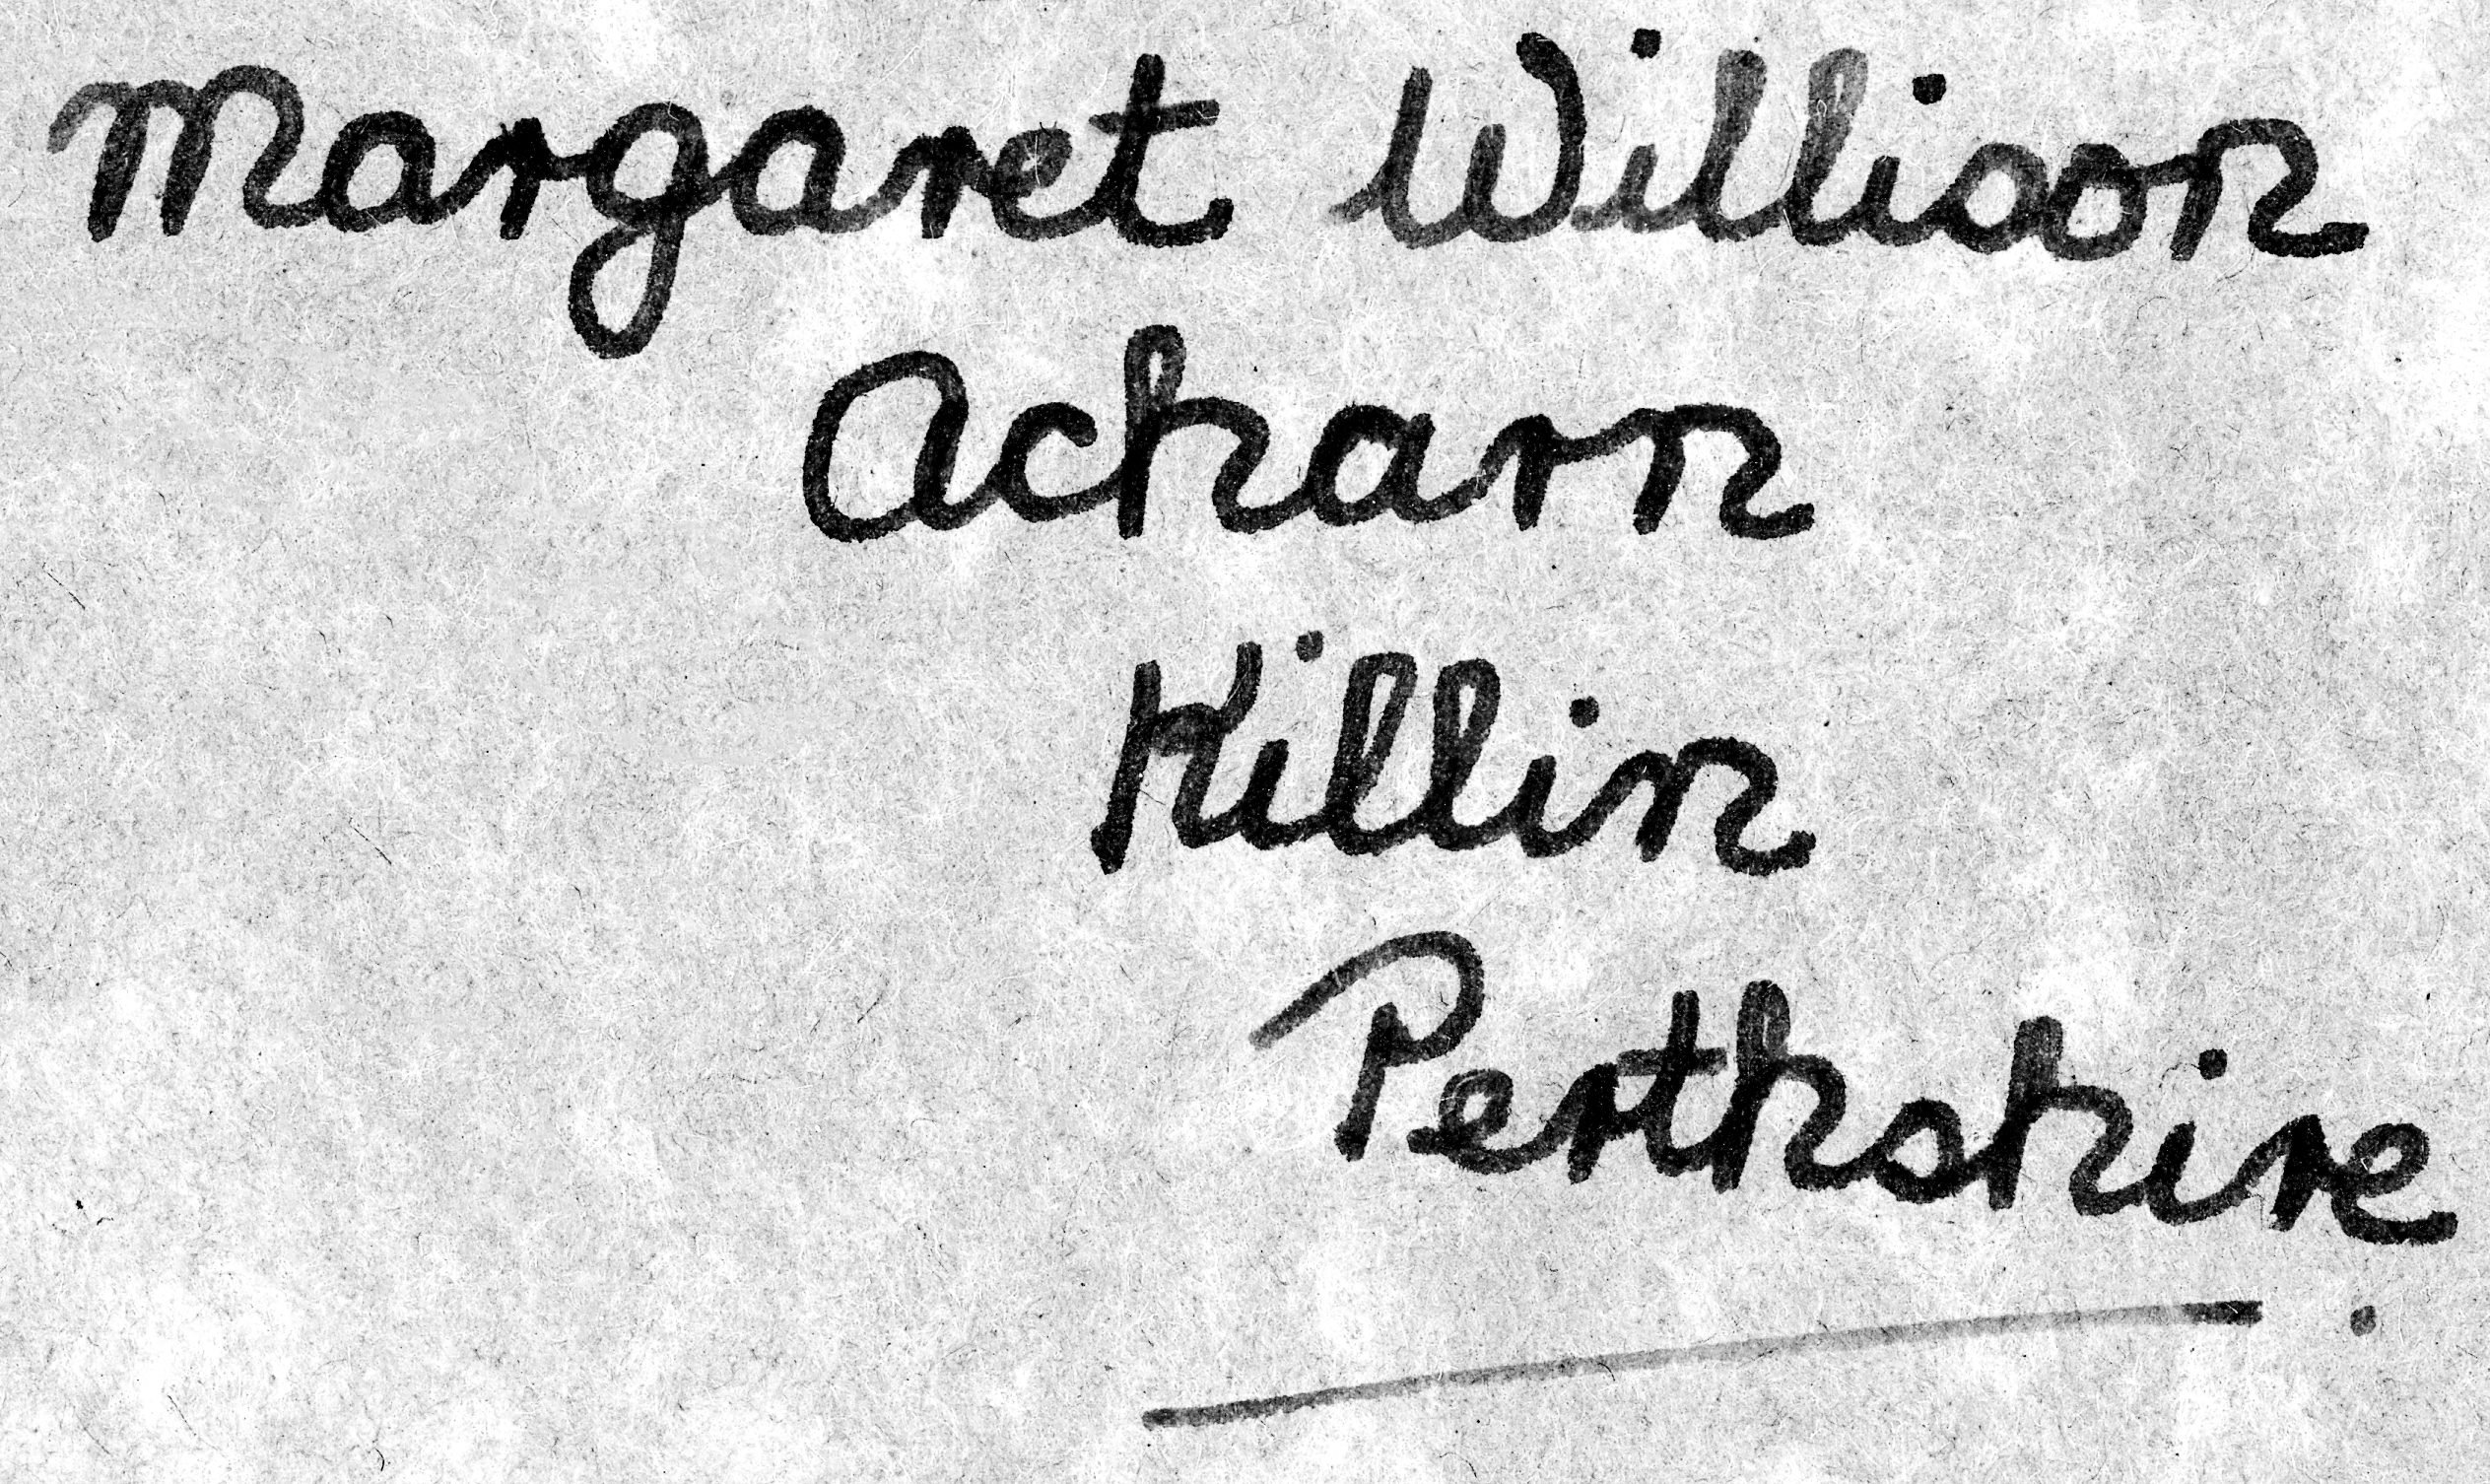 Margaret Willison
Acharn
Killin
Perthshire